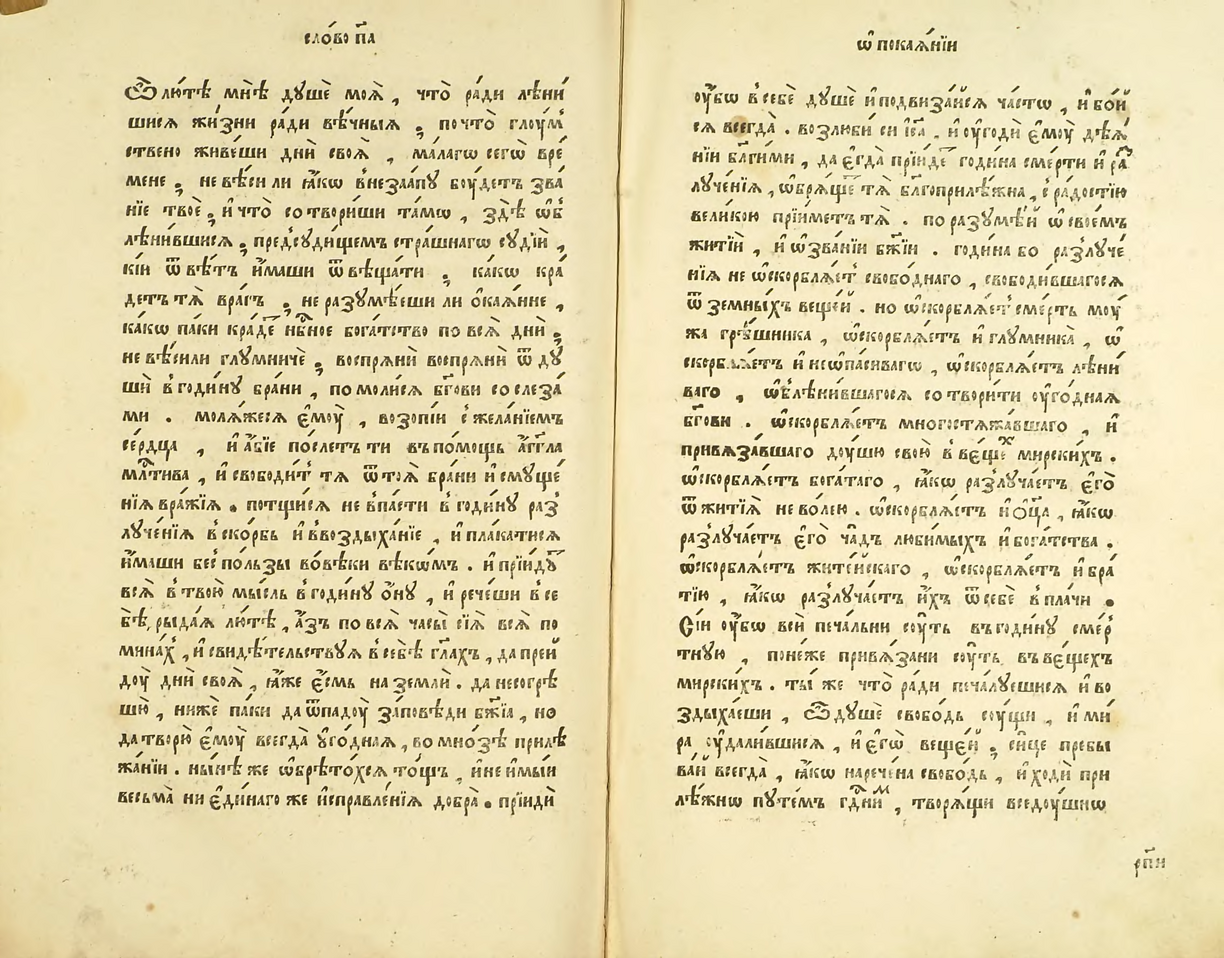 сло́во п҃а
Ѽлю́тѣ мнѣ̀ дꙋшѐ моѧ̀ , что̀ ра́ди лѣни́
шисѧ жи́зни ра́ди вѣ́чныѧ ; почто̀ глоум̾
ствено живе́ши дни̑ своѧ̀ , ма́лагѡ сегѡ̀ вре́
мене ; не вѣ́си ли ꙗ҆́кѡ в̾неза́апꙋ боу́детъ зва́
нїе твоѐ ; и҆ что̀ сотвори́ши та́мѡ , здѣ̀ ѡ҆б̾
лѣни́вшисѧ ; пред̾соуди́щемъ стра́шнагѡ соудїѝ ,
кі́и ѿвѣ́тъ и҆́маши ѿвѣща́ти ; ка́кѡ кра́
детъ тѧ̀ вра́гъ ; не разꙋмѣ́еши ли ѻ҆каѧ́нне ,
ка́кѡ па́ки краде́ нб҇ное бога́тство по всѧ̀ дни̑ ;
не вѣ́сили глꙋмничѐ ; воспрѧнѝ воспрѧнѝ ѿ дꙋ
шѝ в̾годи́нꙋ бра́ни , помоли́сѧ бг҃ови со слеза́
ми . молѧ́жесѧ є҆моу̀ , возопі́й с̾жела́нїемъ
се́рдца , и҆ а҆́бїе по́слетъ ти въ по́мощь а҆́гг҃ла
мл҇тива , и҆ свободи́т̾ тѧ ѿ тоѧ̀ бра́ни и҆ смꙋще́
нїѧ вра́жїѧ . потщи́сѧ не в̾па́сти в̾годи́нꙋ раз̾
лꙋче́нїѧ в̾ско́рбь и҆ в̾воздыха́нїе , и҆ пла́катисѧ
и҆́маши бес̾по́льзы во вѣ́ки вѣ́кѡмъ . и҆ прїи́дꙋ
всѧ̀ в̾твою̀ мы́сль в̾годи́нꙋ ѻ҆́нꙋ , и҆ рече́ши в̾се
бѣ̀, рыда́ѧ лю́тѣ , а҆́зъ по всѧ̀ часы̀ сїѧ̀ всѧ̀ по
мина́х̾ , и҆ свидѣ́тельствꙋѧ в̾се́бѣ гл҃ахъ , да преи́
доу̀ дни̑ своѧ̀ , ꙗ҆̀же є҆́смь на землѝ . да несогрѣ
шю̀ , ниже па́ки да ѿпадоу̀ за́повѣди бж҃їа , но
да творю̀ є҆моу̀ всегда̀ ᲂу҆го́днаѧ , во мно́зѣ прилѣ
жа́нїи . ны́нѣ же ѡ҆брѣто́хсѧ то́щъ , и҆ не и҆мы́и
весьма̀ ни є҆ди́наго же и҆справле́нїѧ добра̀ . прїидѝ
ѡ҆ покаѧ́нїи
ᲂу҆́бѡ в̾себѐ дꙋшѐ и҆ подвиза́йсѧ ча́стѡ , и҆ бо́й
сѧ всегда̀ . возлюби́ си і҆с҃а , и҆ ᲂу҆годѝ є҆моу̀ дѣѧ́
нїи бл҃ги́ми , да є҆гда̀ прїи́де годи́на сме́рти и҆ ра
лꙋче́нїѧ , ѡ҆брѧ́ще тѧ̀ бл҃гоприлѣ́жна , с̾ра́достїю
вели́кою прїи́метъ тѧ̀ . поразꙋмѣ́й ѡ҆ свое́мъ
житїѝ , и҆ ѡ҆зва́нїи бж҃їи . годи́на бо разлꙋче́
нїѧ не ѡ҆скорблѧ́ет̾ свобо́днаго , свободи́вшагосѧ
ѿ земны́хъ веще́й . но ѡ҆скорблѧ́ет̾ сме́рть моу́
жа грѣ́шника , ѡ҆скорблѧ́етъ и҆ глꙋмника̀ , ѡ҆
скорблѧ́етъ и҆ неѡ҆па́сиваго , ѡ҆скорблѧ́етъ лѣни́
ваго , ѡ҆б̾лѣни́вшагосѧ сотвори́ти ᲂу҆го́днаѧ
бг҃ови . ѡ҆скорблѧ́етъ многостѧжа́вшаго , и҆
привѧза́вшаго доу́шю свою̀ в̾ ве́щеⷯ мирски́хъ .
ѡ҆скорблѧ́етъ бога́таго , ꙗ҆́кѡ разлꙋча́етъ є҆го̀
ѿ житїѧ̀ не во́лею . ѡ҆скорблѧ́етъ и҆ ѻ҆ц҃а , ꙗ҆́кѡ
разлꙋча́етъ є҆го̀ ча̑дъ люби́мыхъ и҆ бога́тства .
ѡ҆скорблѧ́етъ жите́йскаго , ѡ҆скорблѧ́етъ и҆ бра́
тїю , ꙗ҆́кѡ разлꙋча́етъ и҆́хъ ѿ себѐ в̾ пла́чи .
Сі́и ᲂу҆́бѡ всѝ печа́льни соу́ть въ годи́нꙋ сме́р̾
тнꙋю , поне́же привѧ́зани соу́ть въ ве́щехъ
мирски́хъ . ты́ же что̀ ра́ди печа́лꙋешисѧ и҆ во
здыха́еши , Ѽ дꙋшѐ свобо́дь соу́щи , и҆ ми́
ра ᲂу҆дали́вшисѧ , и҆ є҆гѡ̀ веще́й ; си́це пребы
ва́й всегда̀ , ꙗ҆́кѡ нарече́на свобо́дь , и҆ ходѝ при
лѣ́жнѡ пꙋте́мъ гд҇ниⷨ , творѧ́щи вседоу́шнѡ
рп҃и